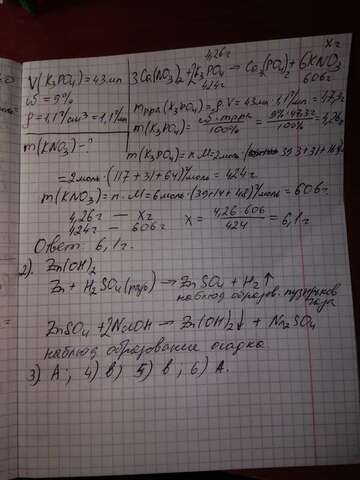 V(K3PO4) = 43мл
ω = 9%
ρ = 1,1 г/см³ = 1,1 г/мл
m(KNO3) - ?
4,26г xг
3Ca(NO3)2 + 2K3PO4 → Ca3(PO4)2 + 6KNO3
424г 606г
m рра (K3PO4) = ρ·V = 43мл · 1,1 г/мл = 47,3г
m(K3PO4) = ω·mрра / 100% = 9%·47,3 / 100% = 4,26г
m(K3PO4) = n·M = 2моль · (39·3+31+16·4)
= 2моль · (117+31+64) г/моль = 424г
m(KNO3) = n·M = 6моль · (39+14+48) г/моль = 606г.
4,26г — xг
424г — 606г
x = 4,26·606 / 424 = 6,1г
Ответ: 6,1г.
2). Zn(OH)2
Zn + H2SO4(разб) → ZnSO4 + H2↑
наблюд образов. пузырьков
газа
ZnSO4 + 2NaOH → Zn(OH)2↓ + Na2SO4
наблюд образование осадка
3) А; 4) в); 5) в; 6) А.